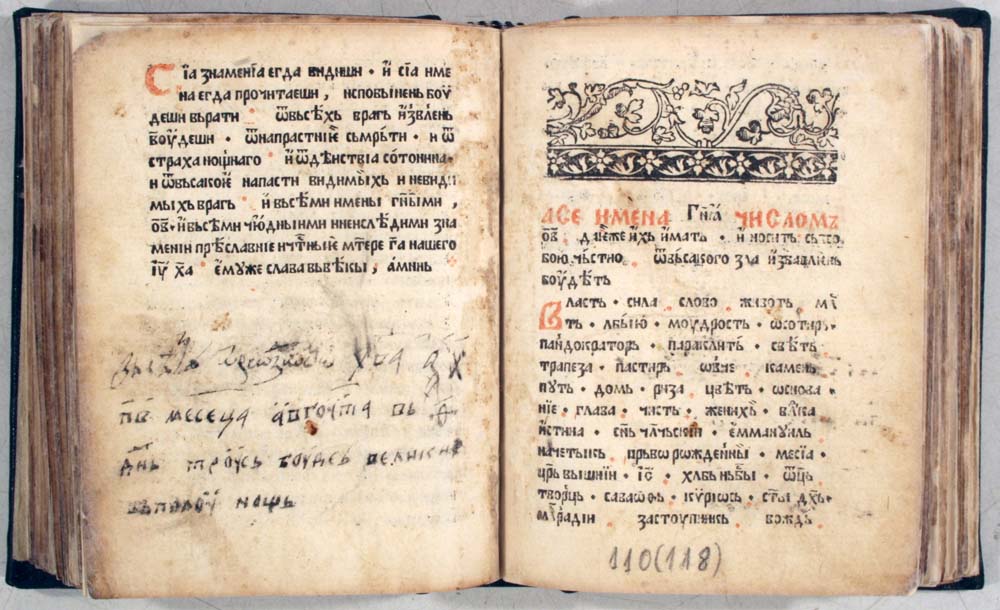 Сїа знаменїа егда видиши · и҆ сїа име
на егда прочитаеши , исповьнень боу
деши вьрати ѿвьсѣхь врагь и҆звлень
боудеши · ѿнапрастнїѥ сьмрьти · и ѿ
страха нощнаго и҆ ѿдѣиствїа сотонина ·
и ѿвьсакоѥ напасти видимыхь и невиди
мыхь врагь · и҆ вьсѣми имены гн҃ими ,
о҃в · и҆ вьсѣми чюдными ннеислѣдими зна
менїи прѣславнїе ич҃тнїе м҃тере г҃а нашего
і҃у х҃а · ѥмуже слава вьвѣкы , аминь
месеца авгоуста вь
д҃нь троусь боудсь велик
вьполоу нощь
А СЕ ИМЕНА Г҃НА ЧИСЛОМЬ
о҃в · даиже ихь имать · и҆ носить сьсо
бою чьстно ѿвьсакого зла и҆збавлень
боудѣть
Власть · сила · слово · животь · м҃и
ть · любы · моудрость ·
пандократорь · параклить · свѣть ·
трапеза · пастирь · ѡвче · камень
путь · домь · риза · цвѣть · ѡснова
нїе · глава · чисть · женихь · в҃лка
и҆стина · с҃нь ч҃лчьскїи · ѥммануиль
начетькь · прьворожденны · месїа ·
ц҃рь вышнїи · і҃с · хлѣбь н҃бны · ѿ҃ць
творць · саваоѳь · курїѡсь · с҃ты д҃хь ·
м҃лрдїи застоупникь вождь
110(118)